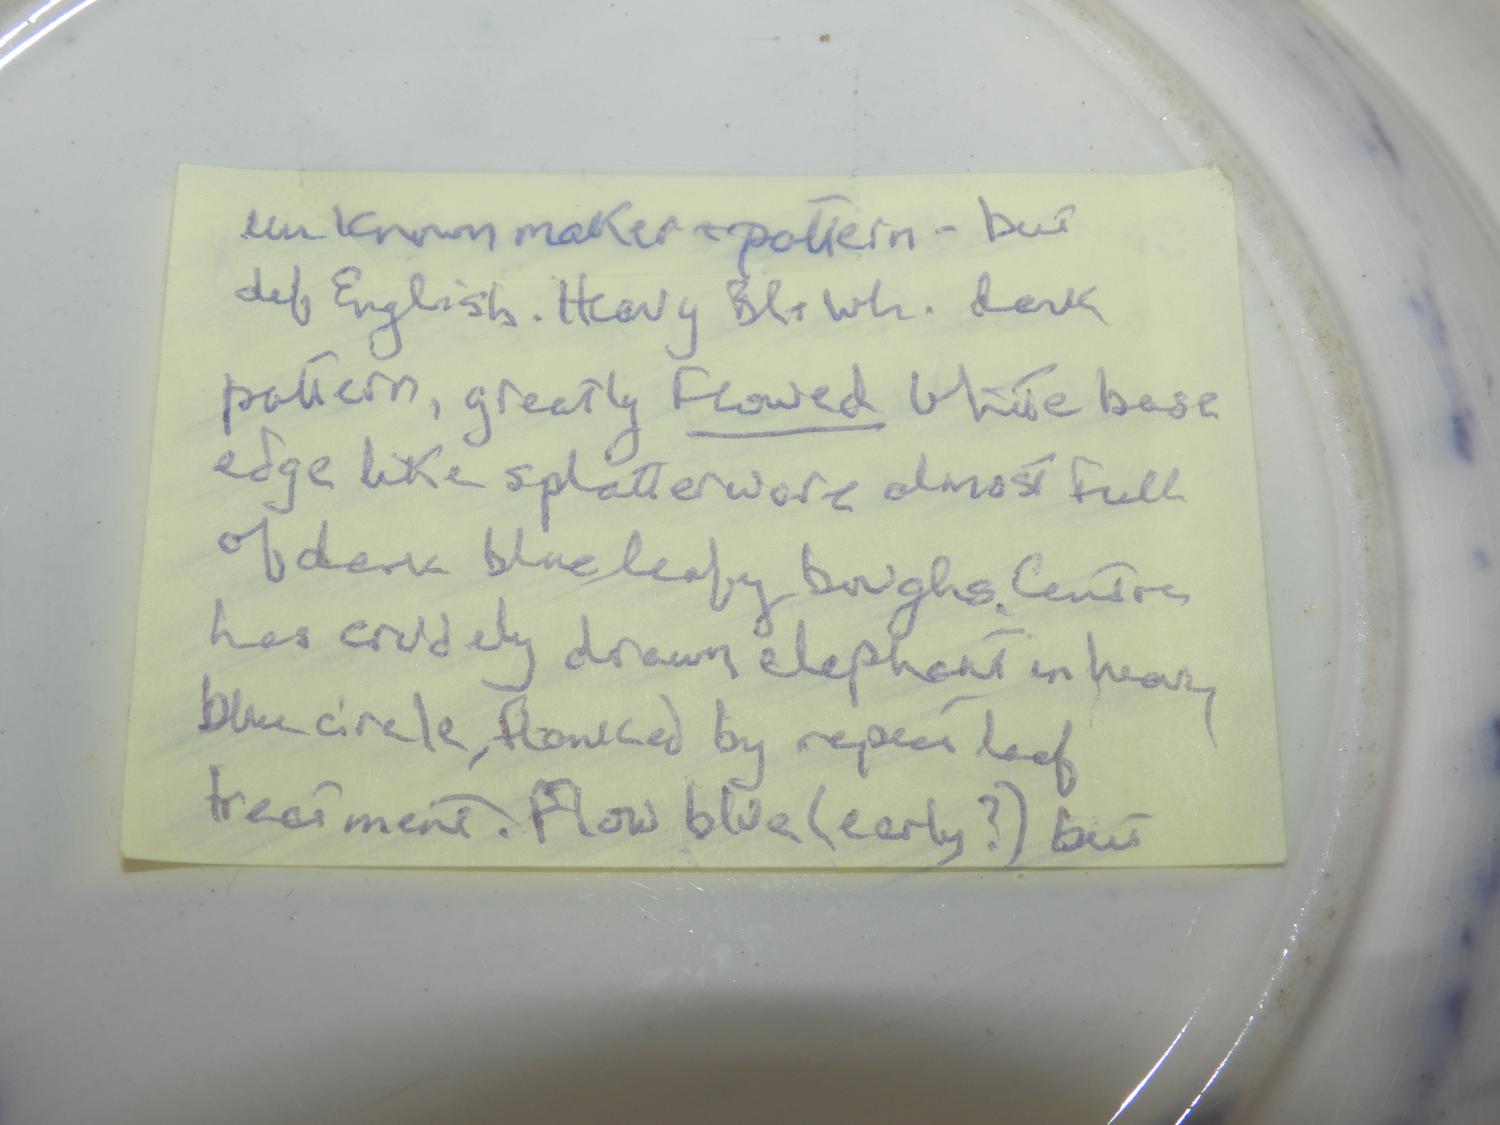 unknown maker + pattern - but
def English. Heavy Bl + Wh. dark
pattern, greatly Flowed White base
edge like splatterware almost full
of dark blue leafy boughs. Centre
has crudely drawn elephant in heavy
blue circle, flanked by repeat leaf
treatment. Flow blue (early?) but